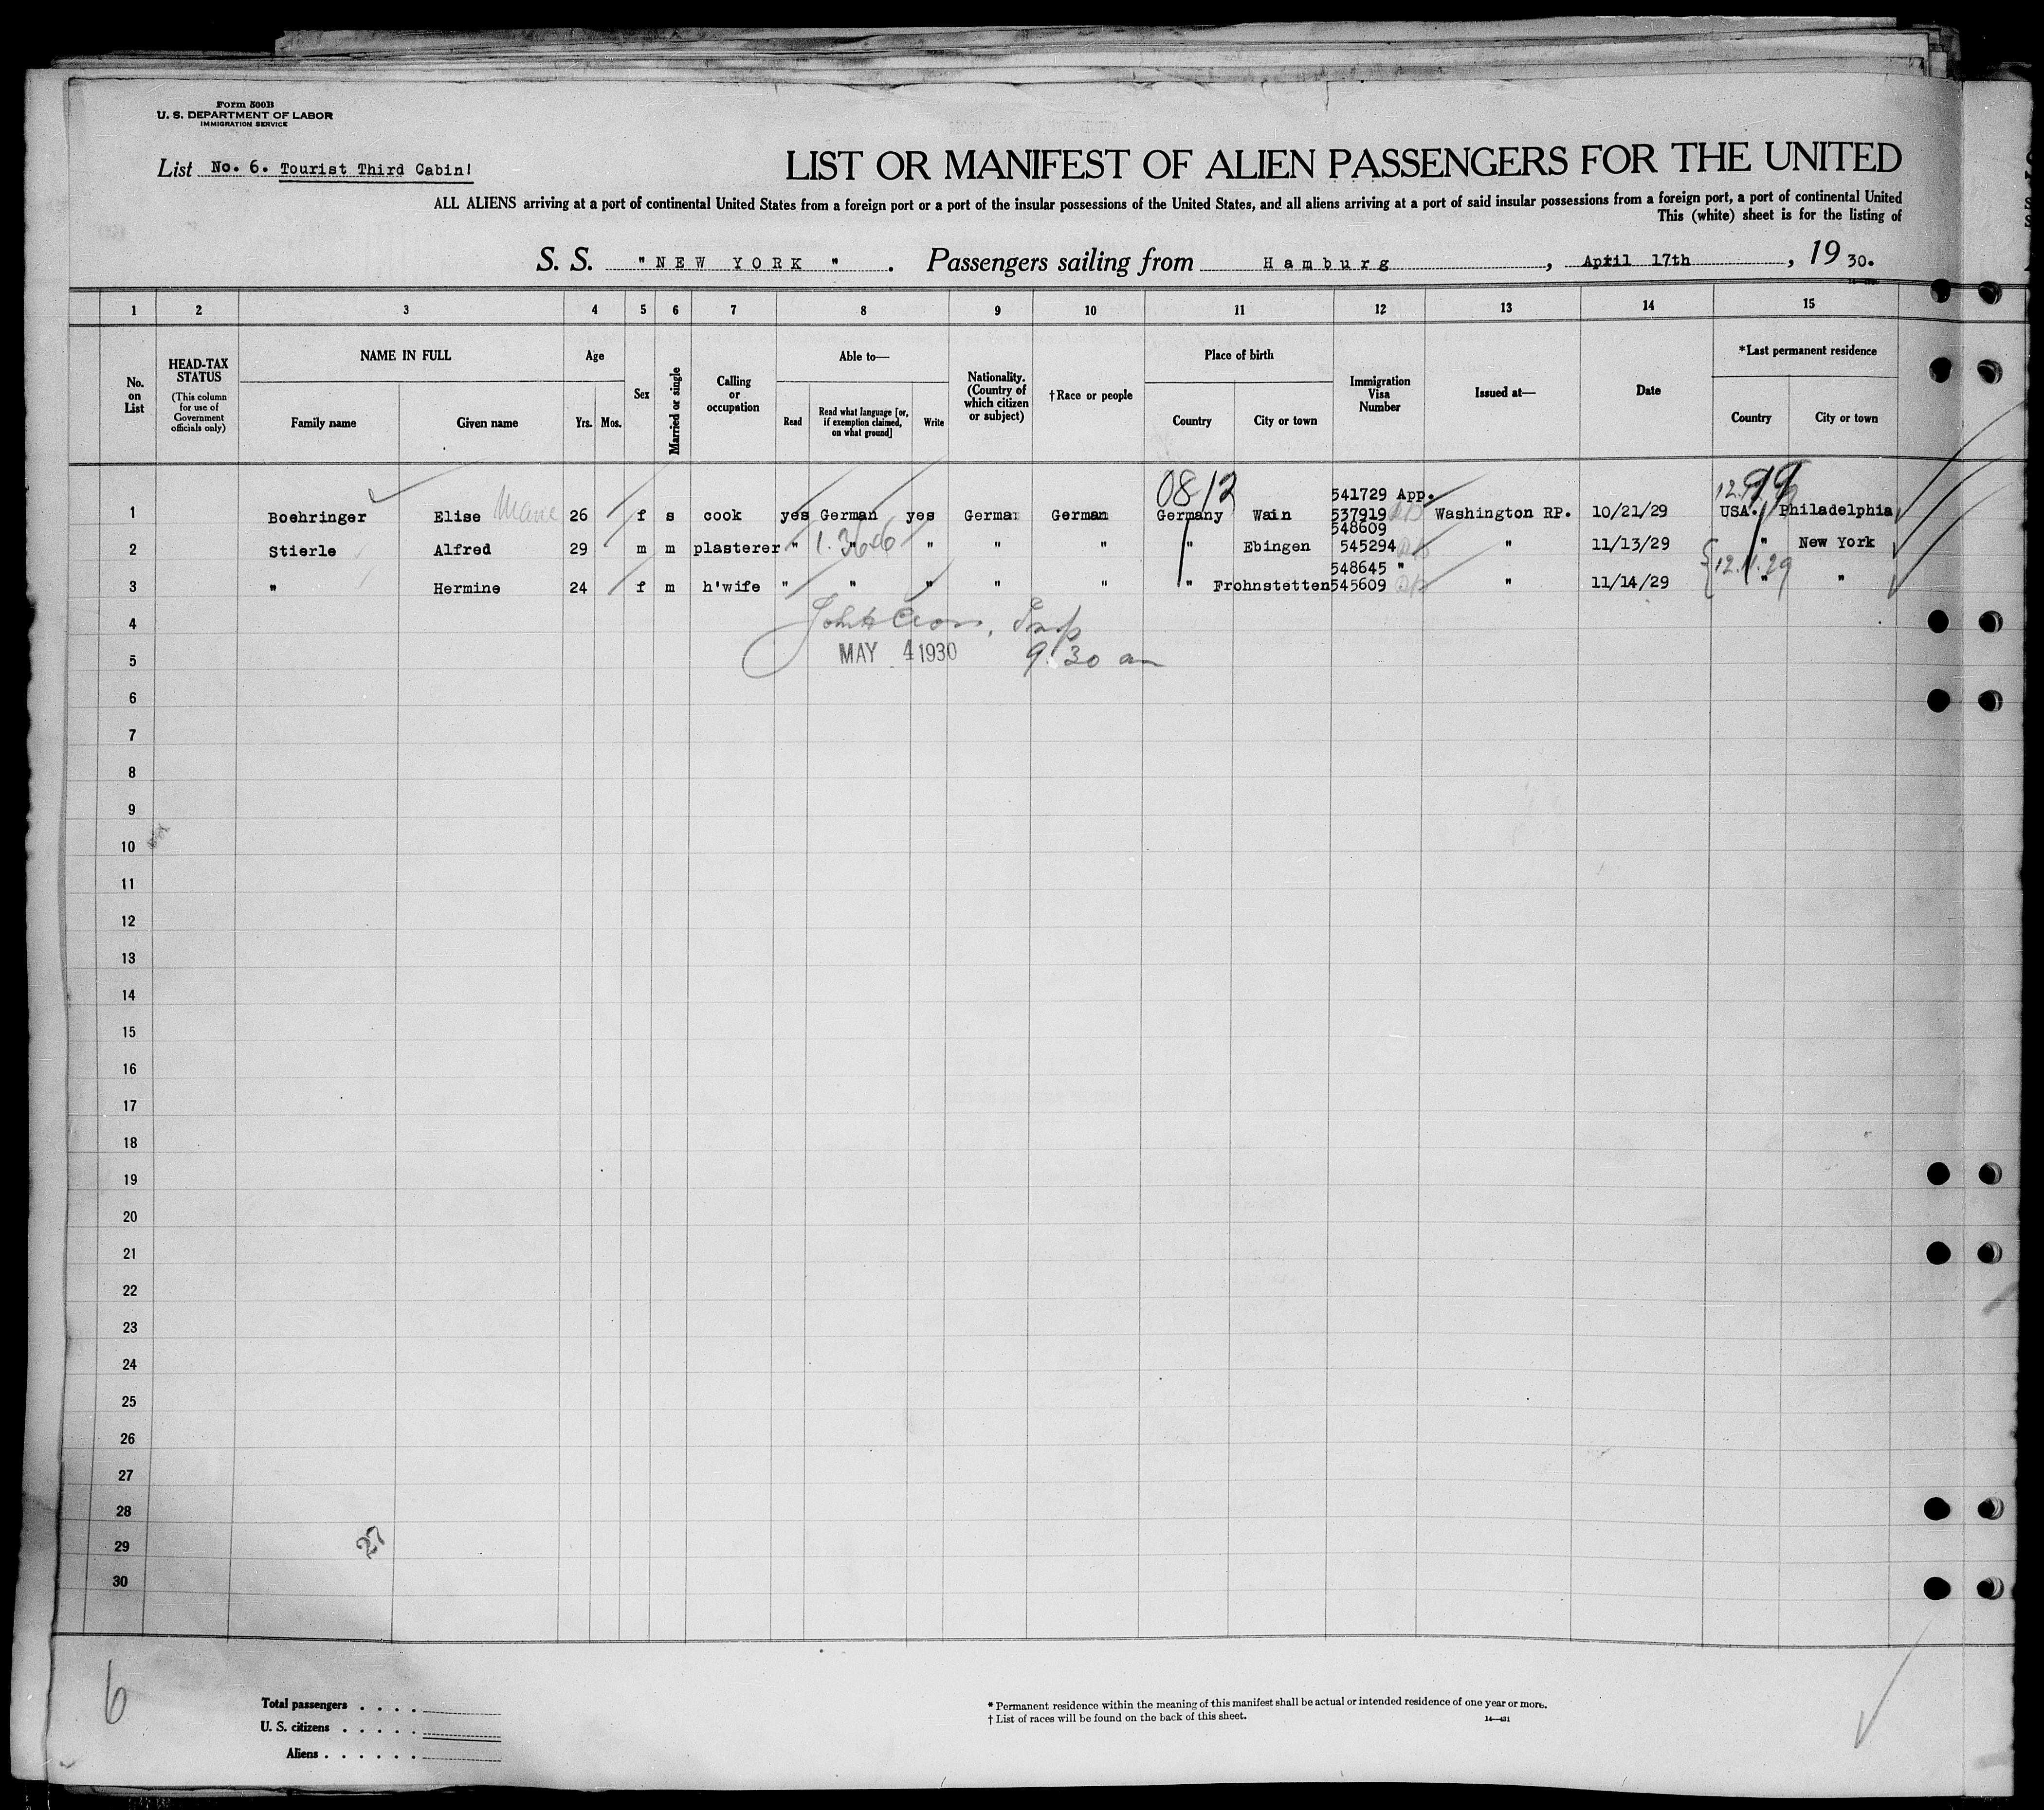 Form 500B
U. S. DEPARTMENT OF LABOR
IMMIGRATION SERVICE
List No. 6. Tourist Third Cabin!
LIST OR MANIFEST OF ALIEN PASSENGERS FOR THE UNITED
ALL ALIENS arriving at a port of continental United States from a foreign port or a port of the insular possessions of the United States, and all aliens arriving at a port of said insular possessions from a foreign port, a port of continental United
This (white) sheet is for the listing of
S. S. "NEW YORK". Passengers sailing from Hamburg, April 17th, 1930.
1 2 3 4 5 6 7 8 9 10 11 12 13 14 15
No. on List
HEAD-TAX STATUS
(This column for use of Government officials only)
NAME IN FULL
Family name Given name
Age
Yrs. Mos.
Sex
Married or single
Calling or occupation
Able to—
Read
Read what language [or, if exemption claimed, on what ground]
Write
Nationality. (Country of which citizen or subject)
†Race or people
Place of birth
Country City or town
Immigration Visa Number
Issued at—
Date
*Last permanent residence
Country City or town
0812 541729 App. 99
1 Boehringer Elise Marie 26 f s cook yes German yes German German Germany Wain 537919 Washington RP. 10/21/29 USA. Philadelphia
548609
2 Stierle Alfred 29 m m plasterer " " " " " " Ebingen 545294 " 11/13/29 " New York
548645 " 12.11.29
3 " Hermine 24 f m h'wife " " " " " " Frohnstetten 545609 " 11/14/29 " "
4 Insp
5 MAY 4 1930 9:30 am
6
7
8
9
10
11
12
13
14
15
16
17
18
19
20
21
22
23
24
25
26
27
28
29 27
30
6
Total passengers . . . .
U. S. citizens . . . . .
Aliens . . . . . .
* Permanent residence within the meaning of this manifest shall be actual or intended residence of one year or more.
† List of races will be found on the back of this sheet.
14—431